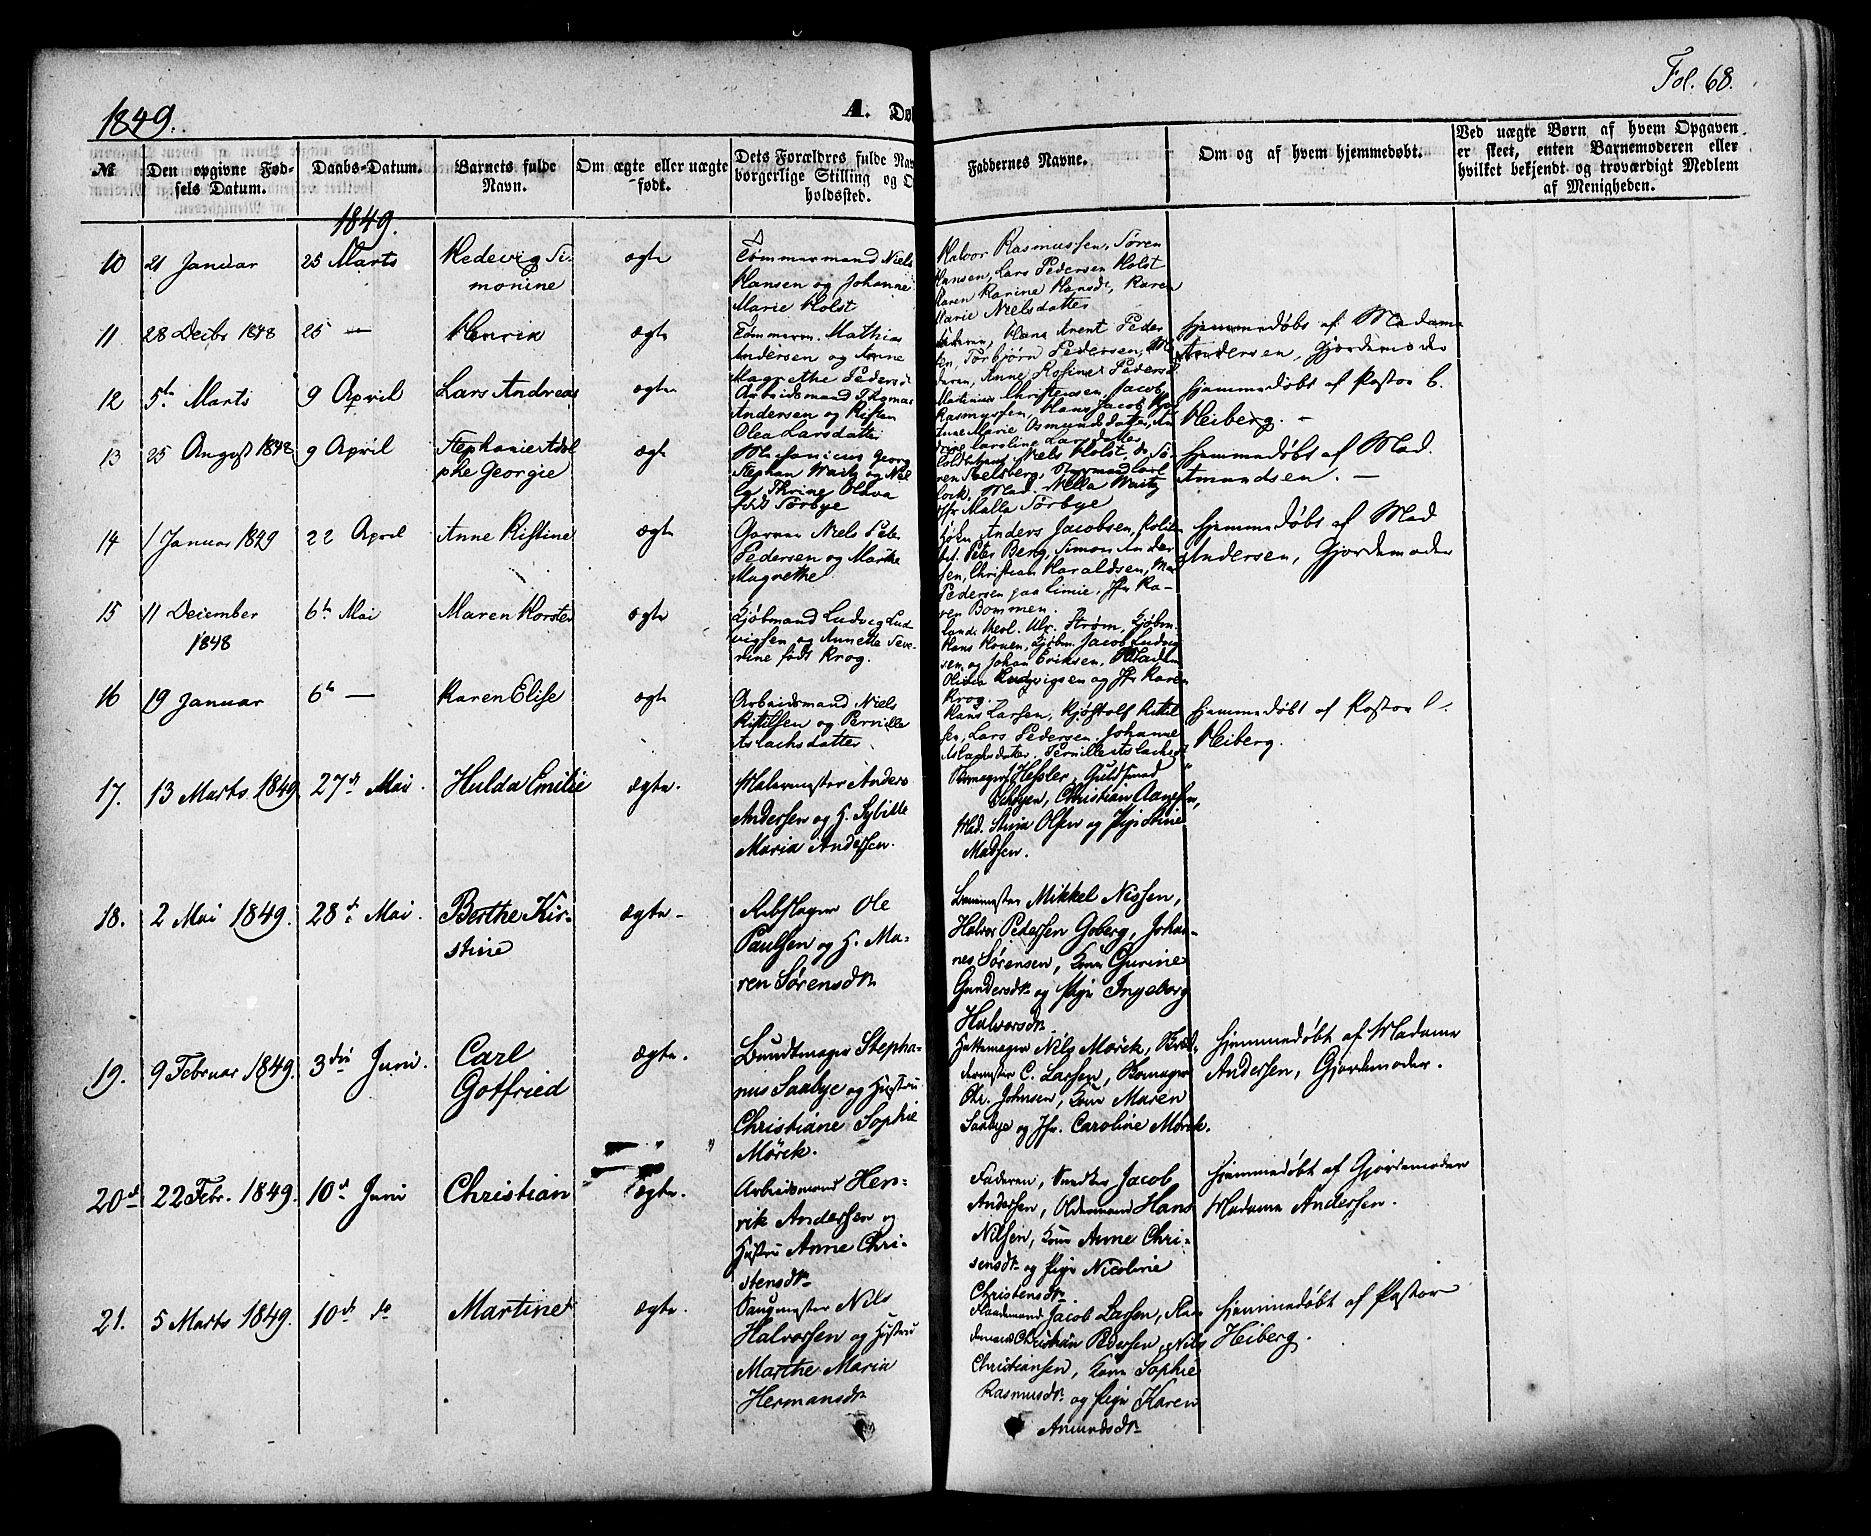 Fol. 68.
1849.
A. Dø
№
Den opgivne Fød-
sels Datum.
Daabs-Datum.
Barnets fulde
Navn.
Om ægte eller uægte
født.
Dets Forældres fulde Nav
borgerlige Stilling og O
holdssted.
Faddernes Navne.
Om og af hvem hjemmedøbt.
Ved uægte Børn af hvem Opgaven
er skeet, enten Barnemoderen eller
hvilket bekjendt og troværdigt Medlem
af Menigheden.
1849.
10
21 Januar
25 Marts
Hedevig Si-
monine
ægte
Tømmermand Niels
Hansen og Johanne
Marie Holst
Halvor Rasmussen, Sören
Hansen, Lars Pedersen Holst
Maren Karine Hansdr, Karen
Marie Nielsdatter
11
28 Decbr 1848
25 —
Henrik
ægte
Tømmerm. Mathias
Andersen og Anne
Magrethe Pedersd
Faderen, Hans Arent Peder
sen, Torbjørn Pedersen, Mo
deren, Anne Rosine Pedersd
Hjemmedøbt af Madame
Andersen, Gjordemoder
12
5te Marts
9 April
Lars Andreas
ægte
Arbeidsmand Thomas
Andersen og Kisten
Olea Larsdatter
Martinius Christensen, Jacob
Rasmussen, Hans Jacob
Anne Marie Osmundsdatter, An
Caroline Larsdatter
Hjemmedøbt af Pastor C.
Heiberg. —
13
25 August 1848
9 April
Stephanie Adol
phe Georgie
ægte
Mechanicus Georg
Stephan Waitz og Niel
sy Thrine Olava
født Torbye
Toldbetjent Niels Holst, Sö
ren Soelsberg, Styrmand Carl
Mad. Nella Waitz
Jfr Malla Torbye
Hjemmedøbt af Mad.
Amundsen. —
14
1 Januar 1849
22 April
Anne Kistine
ægte
Garver Niels Peter
Pedersen og Marthe
Magrethe
Anders Jacobsen, Politie
bet. Peter Berg, Simon Ander
sen, Christian Haraldsen, Mar
Pedersen paa Limie, Jfr Ka-
ren Bommen.
Hjemmedøbt af Mad
Andersen, Gjordemoder
15
11 December
1848
6te Mai
Maren Horster
ægte
Kjøbmand Ludvig Lud
vigsen og Annette Seve
rine født Krog.
Cand. theol. Ulr. Strøm, Kjøbm.
Hans Houen, Kjøbm. Jacob Ludvig
sen, og Johan Eriksen, Madam
Olivia Ludvigsen og Jfr Karen
Krog.
16
19 Januar
6te —
Karen Elise
ægte
Arbeidsmand Niels
Kittilsen og Pernille
Aslachsdatter
Hans Larsen, Kjøstolf Kittil
sen, Lars Pedersen, Johanne
Aslagsdatter, Pernille Aslachsd
Hjemmedøbt af Pastor C.
Heiberg.
17.
13 Marts 1849.
27de Mai.
Hulda Emilie
ægte.
Malermester Anders
Andersen og H. Sybille
Maria Andersen.
Bomager Hessler, Guldsmed
Schøyen, Christian Aanesen,
Mad. Stina Olsen og Pige Stine
Madsen.
18.
2 Mai 1849.
28de Mai.
Berthe Kir-
stine
ægte.
Rebslager Ole
Paulsen og H. Ma-
ren Sørensdtr.
Mikkel Nissen,
Halvor Pedersen Goberg, Johan-
nes Sørensen, Kone Gurine
Gundersdtr. og Pige Ingeborg
Halvorsdtr.
19.
9 Februar 1849.
3die Juni.
Carl
Gotfried
ægte.
Bundtmager Stepha-
nus Saabye og Hustru
Christiane Sophie
Mørck.
Hattemager Nils Mørck, Bræd-
dermester C. Larsen, Bomager
Chr. Johnsen, Kone Maren
Saabye og Jfr. Caroline Mørck.
Hjemmedøbt af Madame
Andersen, Gjordemoder.
20de
22 Febr. 1849.
10de Juni
Christian
ægte.
Arbeidsmand Hen-
rik Andersen og
Hustru Anne Chri-
stensdtr.
Faderen, Smed Jacob
Andersen, Oldermand Hans
Nilsen, Kone Anne Chri-
stensdtr. og Pige Nicoline
Christensdtr.
Hjemmedøbt af Gjordemoder
Madame Andersen.
21.
5 Marts 1849.
10de do
Martine
ægte.
Saugmester Nils
Halvorsen og Hustru
Marthe Maria
Hermansdtr.
Flaademand Jacob Larsen, Flaa
demand Christian Pedersen, Nils
Christiansen, Kone Sophie
Rasmusdtr. og Pige Karen
Amundsdtr.
Hjemmedøbt af Pastor
Heiberg.